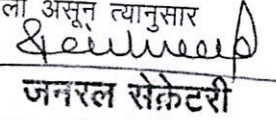 ला असून त्यानुसार
जनरल सेक्रेटरी